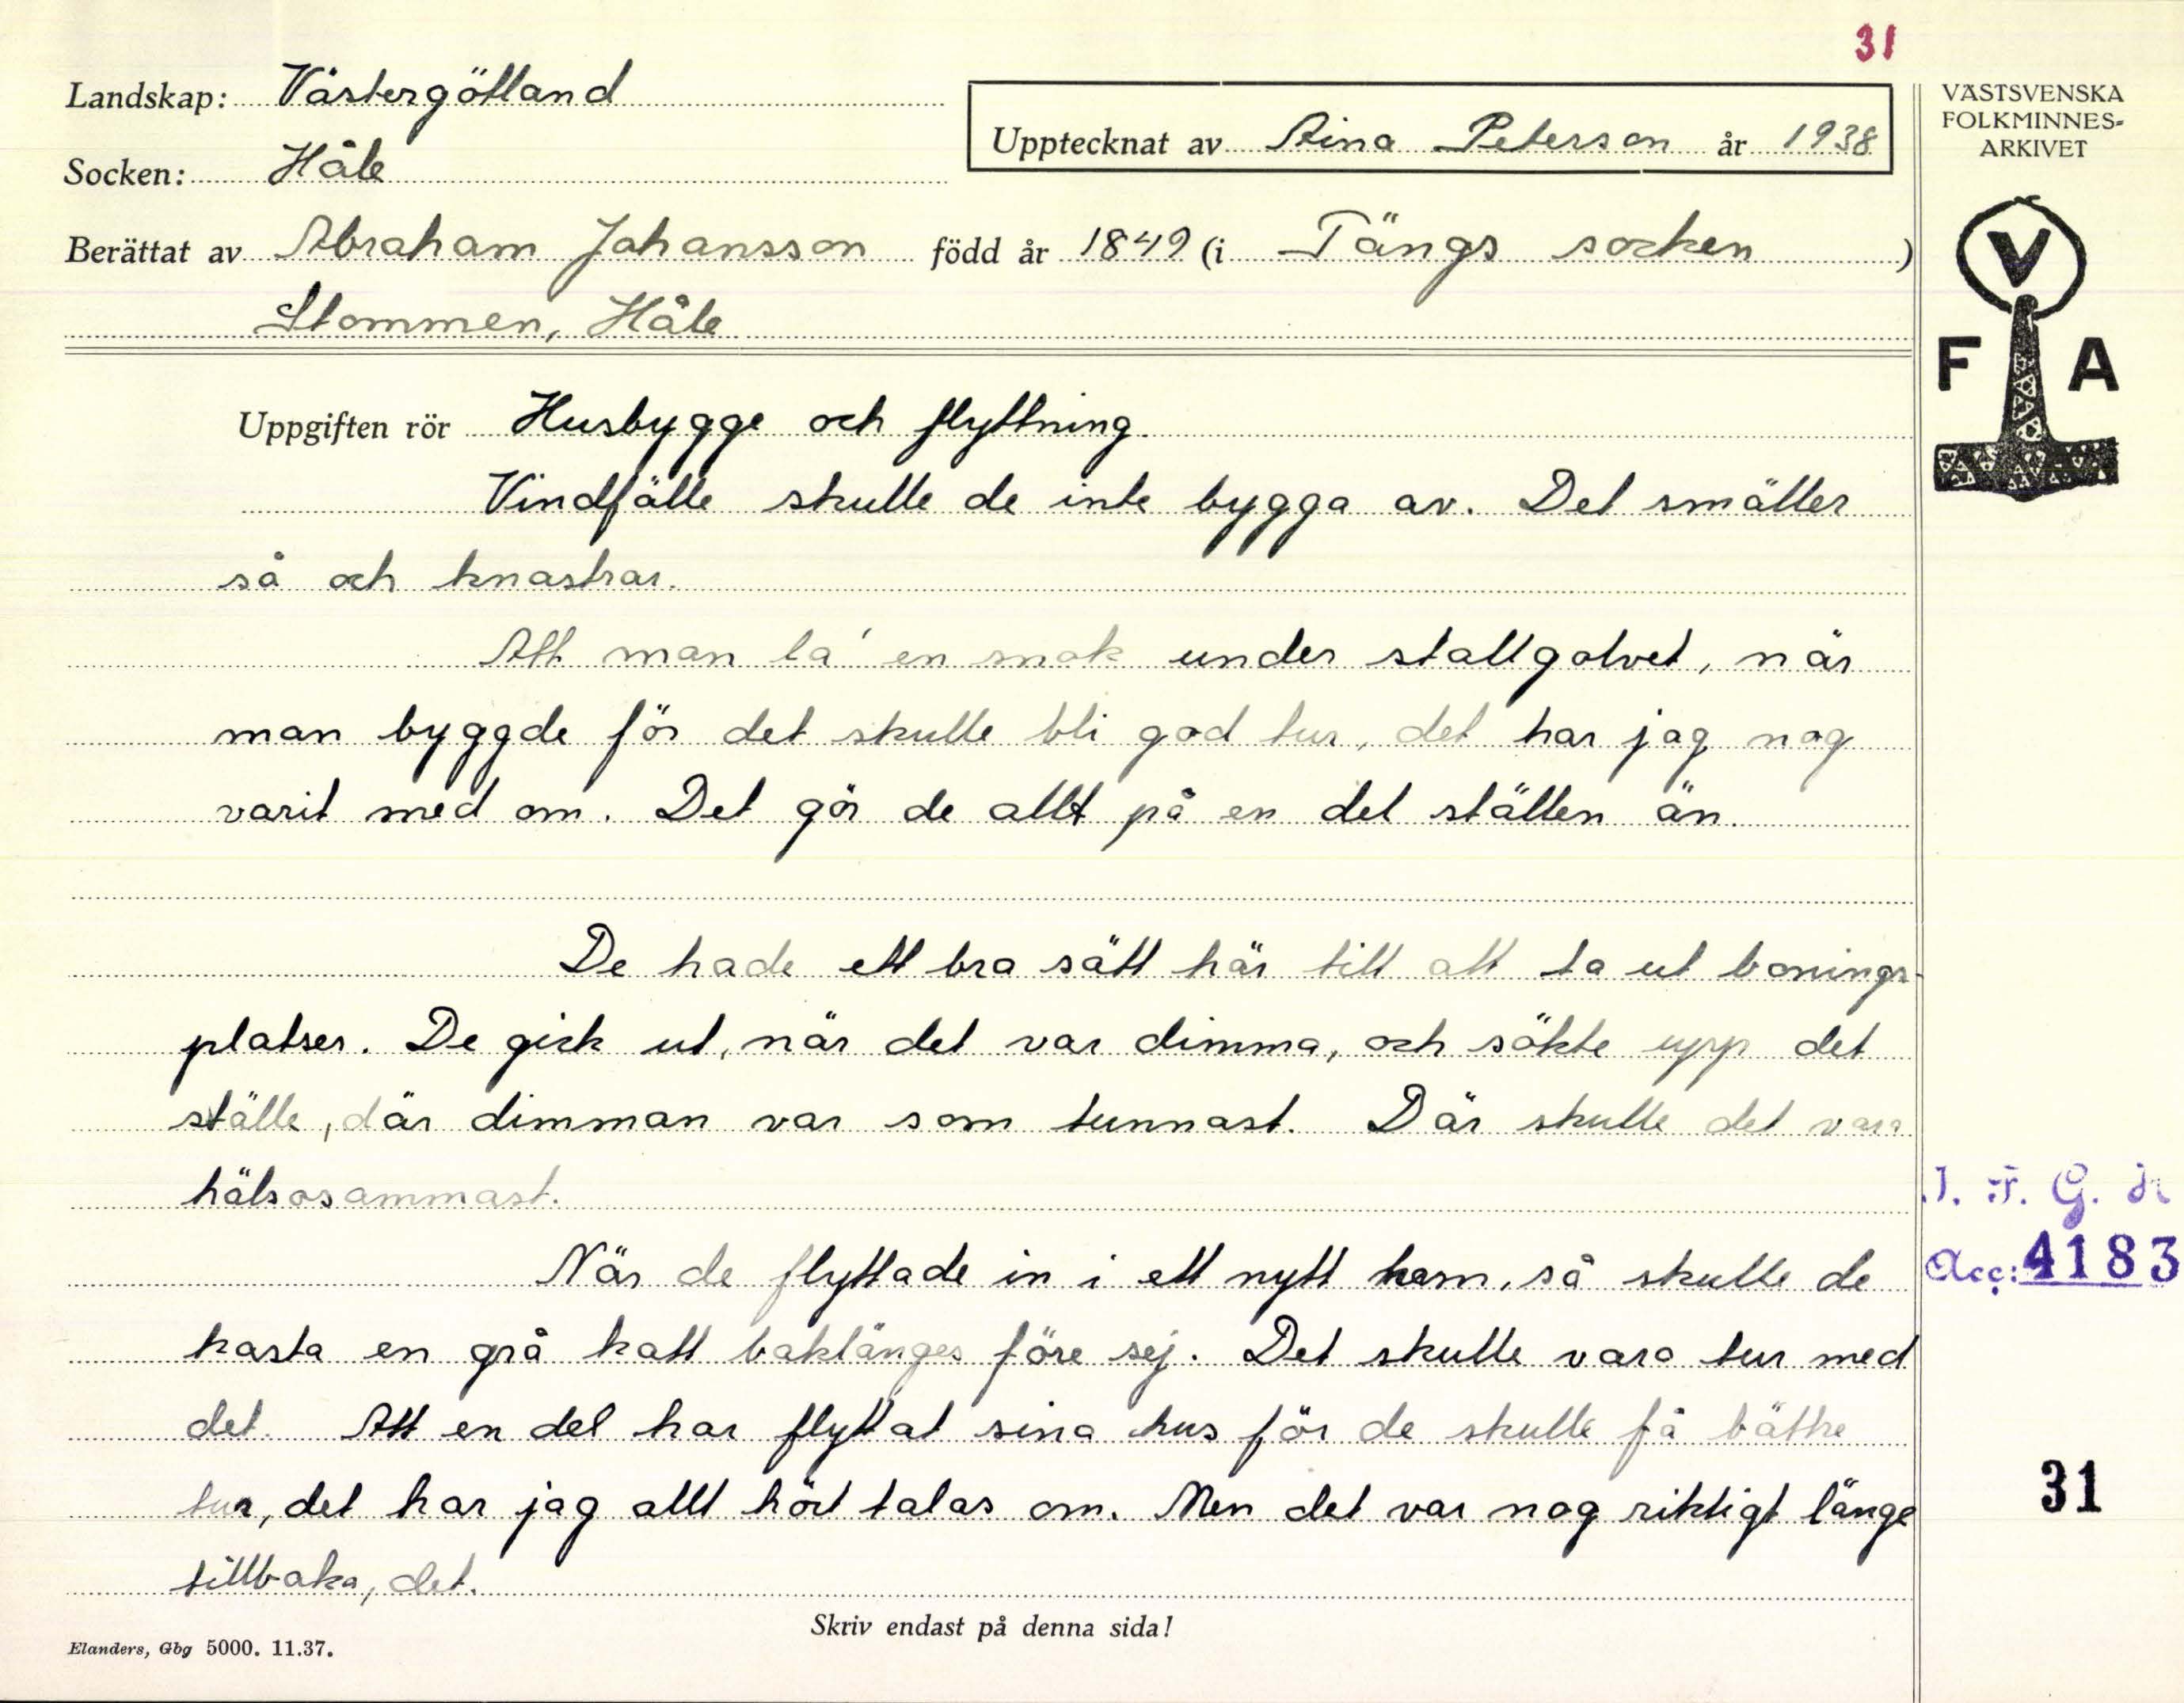 31
Landskap: Västergötland
Upptecknat av Aina Peterson år 1938
Socken: Håle
Berättat av Abraham Johansson född år 1849 (i Tängs socken)
Stommen, Håle
VÄSTSVENSKA
FOLKMINNES-
ARKIVET
V
F A
Uppgiften rör Husbygge och flyttning.
Vindfälle skulle de inte bygga av. Det smäller
så och knastrar.
Att man la' en snok under stallgolvet, när
man byggde för det skulle bli god tur, det har jag nog
varit med om. Det gör de allt på en del ställen än.
De hade ett bra sätt här till att ta ut bonings-
platser. De gick ut, när det var dimma, och sökte upp det
ställe, där dimman var som tunnast. Där skulle det vara
hälsosammast.
När de flyttade in i ett nytt hem, så skulle de
kasta en grå katt baklänges före sej. Det skulle vara tur med
det. Att en del har flyttat sina hus för de skulle få bättre
tur, det har jag allt hört talas om. Men det var nog riktigt länge
tillbaka, det.
I. F. G. H
Acc: 4183
31
Skriv endast på denna sida!
Elanders, Gbg 5000. 11.37.